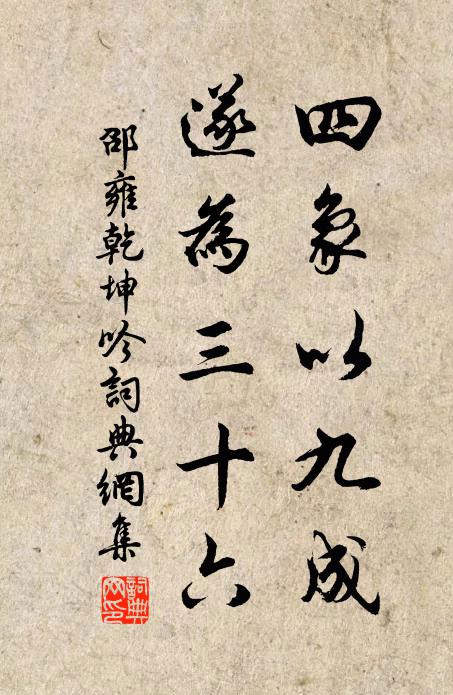 四象以九成
遂為三十六
邵雍乾坤吟詞典網集
詞典网印